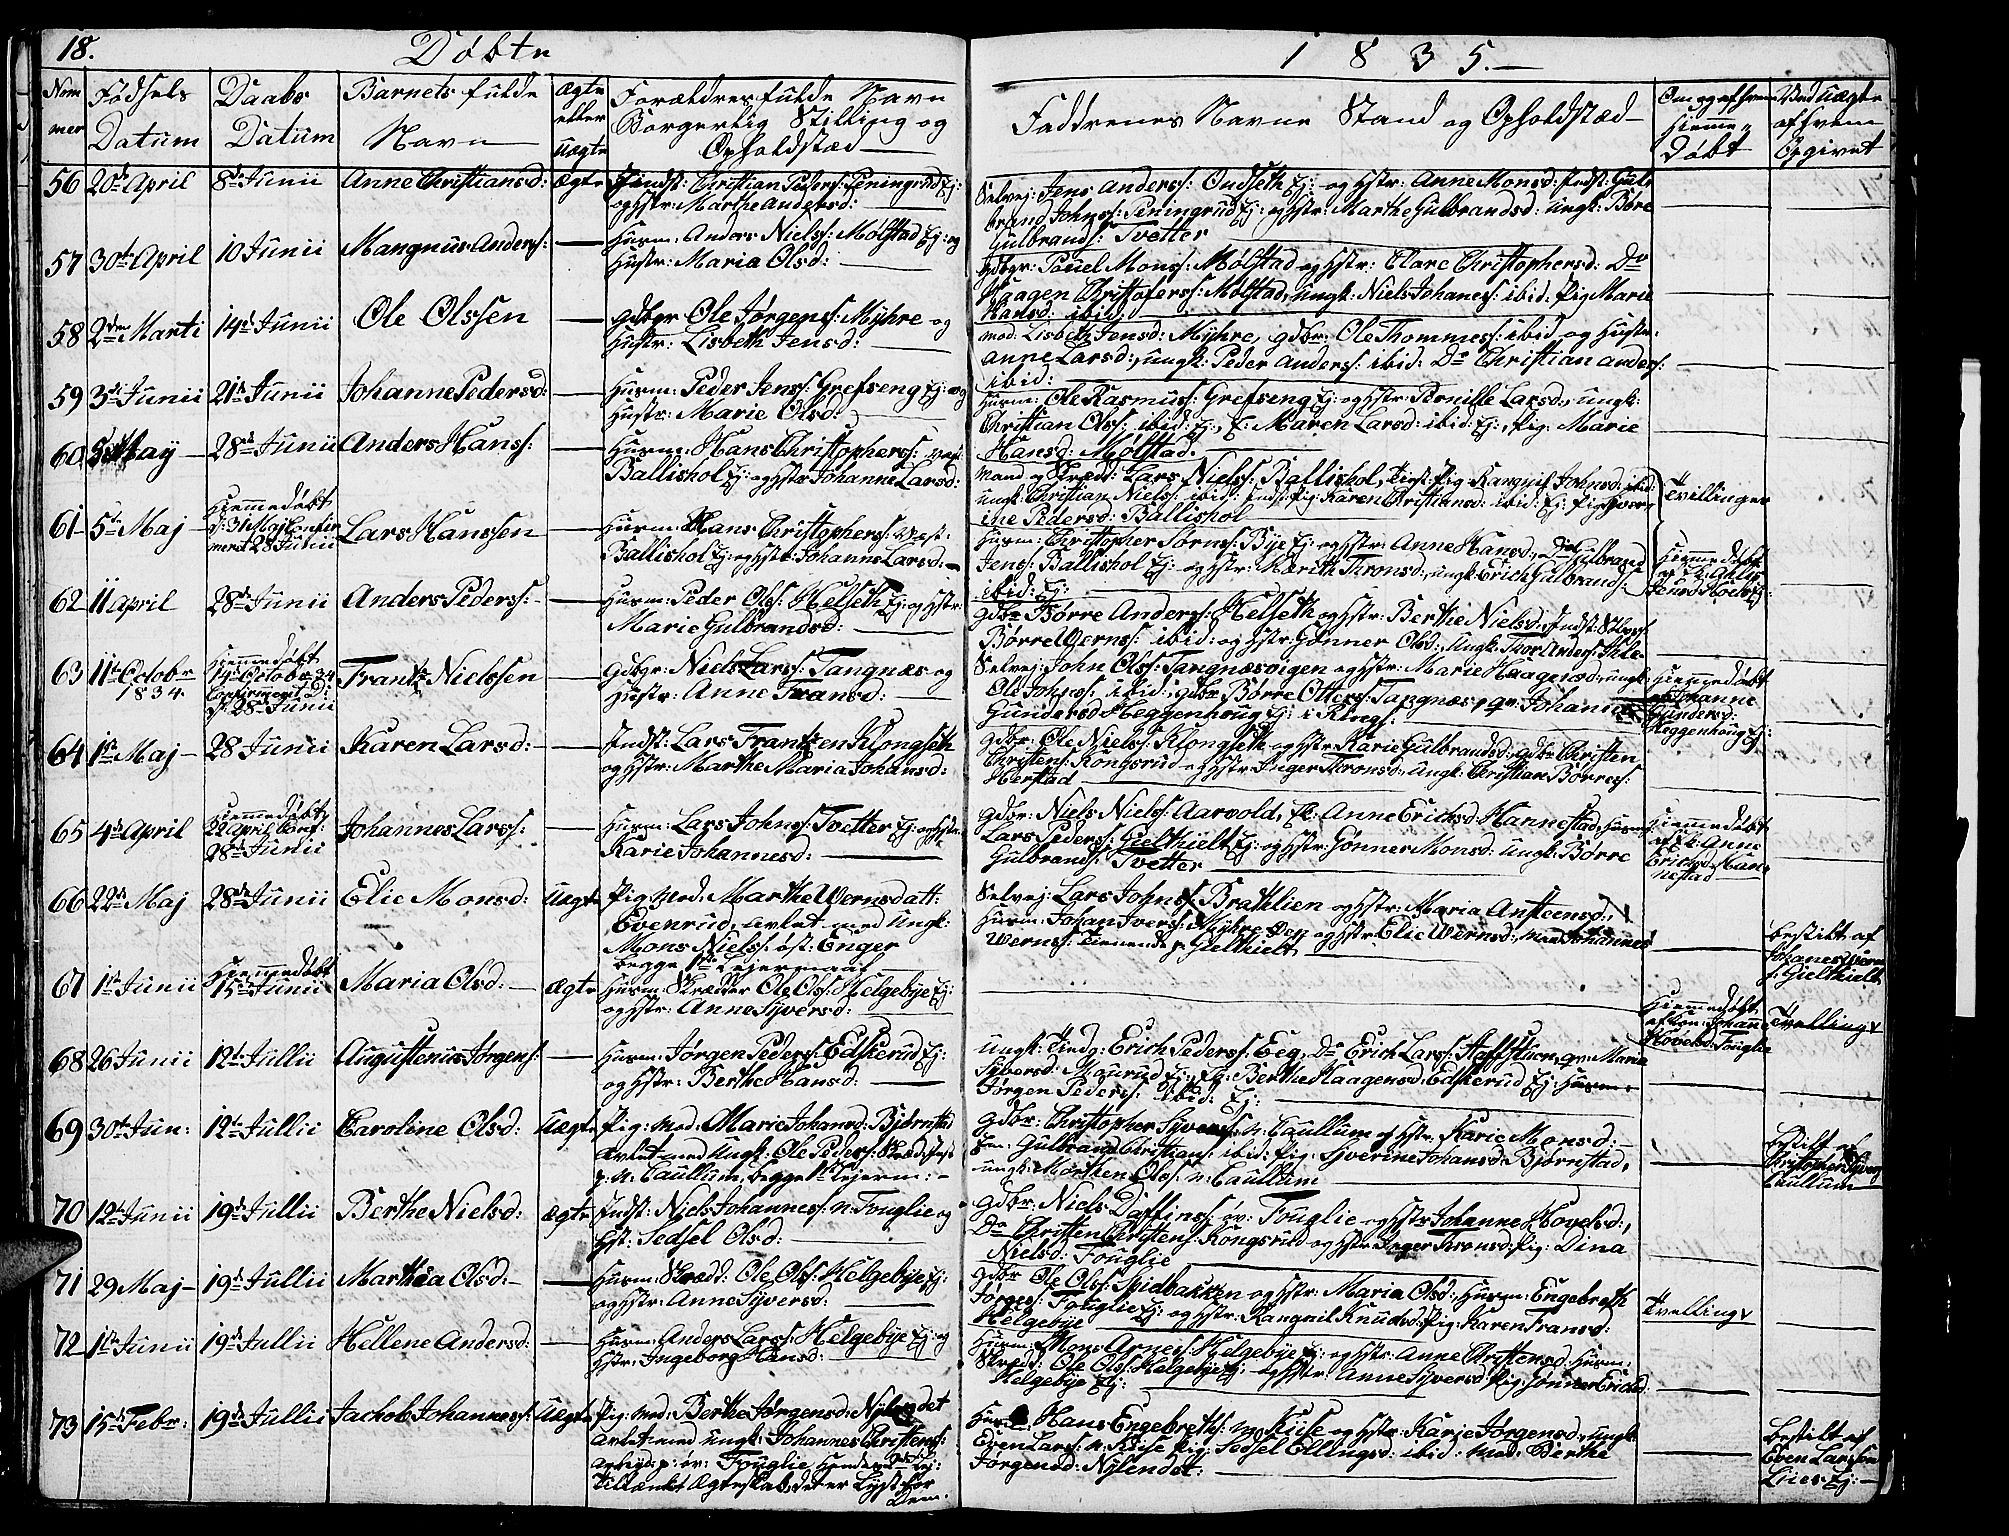 18. Döbte 1 8 3 5.
Nom
mer
Födsels
Datum
Daabs
Datum
Barnets fulde
Navn
Ægte
eller
Uægte
Forældres fulde Navn
Borgerlig Stilling og
Opholdstæd
Faddrenes Navne Stand og Opholdstæd
Om og af hvem
Hiemme
döbt
Ved uægte
af hvem
Opgivet
56 20de April 8de Junii Anne Christiansd: Ægte Indst: Christian Peders: Peningrud Ej:
og Hstr: Marthe Andersd:
Selvej: Jens Anders: Ondseth Ej: og Hstr: Anne Monsd: Indst: Gul-
brand Johns: Peningrud Ej: og Hstr: Marthe Gulbrandsd: ungk: Böre
Gulbrands: Tvetter
57 30te April 10 Junii Mangnus Anders: Husm: Anders Niels: Mölstad Ej: og
Hustr: Maria Olsd:
Gdbr: Pouel Mons: Mölstad og Hstr: Clare Christophersd: Do
Haagen Christofers: Mölstad, ungk: Niels Johanes: ibid: Pig Marie
Hansd: ibid:
58 2den Marti 14de Junii Ole Olssen Gdbgr Ole Jörgens: Myhre og
Hustr: Lisbeth Jensd:
mod: Lisbeth Jensd: Myhre, gdbr: Ole Thommes: ibid og Hustr:
Anne Larsd:, ungk: Peder Anders: ibid: Do Christian Anders:
ibid:
59 3de Junii 21de Junii Johanne Pedersd: Husm: Peder Jens: Grefseng Ej: og
Hustr: Marie Olsd:
Husm: Ole Rasmus: Grefseng Ej: og Hstr: Pernille Larsd:, ungk:
Christian Ols: ibid: Ej:, E: Maren Larsd: ibid: Ej:, Pig: Marie
Hansd: Mölstad.
60 May 28de Junii Anders Hans: Husm: Hans Christophers: vest:
Ballishol Ej: og Hstr Johanne Larsd:
Lars Niels: Ballishol, Pig Rangnil Johnsd: ibid
ungk: Christian Niels: ibid: Indst: Pig Karen Christiansd: ibid: Ej: Pig Syver-
ine Pedersd: Ballishol
Tvillinger
61 5te Maj Hiemmedöbt
d: 31 Maj Confir
meret 28 Junii
Lars Hanssen Husm: Hans Christophers: vest:
Ballishol Ej: og Hstr: Johanne Larsd:
Husm: Christopher Sorns: Bye Ej: og Hstr: Anne Hansd:, Gulbrand
Jens: Ballishol Ej: og Hstr: Marith Thronsd:, ungk: Erich Gulbrands:
ibid: Ej:
Hiemmedöbt
62 11 April 28de Junii Anders Peders: Husm: Peder Ols: Helseth Ej: og Hstr:
Marie Gulbrandsd:
gdbr Börre Anders: Helseth og Hstr: Berthe Nielsd:, Indst:
Börre Werns: ibid: og Hstr: Gönner Olsd:, Ungk: Thor Anders:
63 11te Octobr
1834.
Hiemmedöbt
14de Octobr 34
Confirmerit
d: 28de Junii
Frantz Nielssen gdbgr: Niels Lars: Tangnæs og
Hustr: Anne Fransd:
Selvej: John Ols: Tangnæsvigen og Hstr: Marie Haagensd:, ungk:
Ole Johns: ibid:, gdbr Börre Otters: Tangnæs, gv: Johanne
Gundersd Heggenhoug Ej: i Rings:
Hiemmedöbt
af Johanne
Gundersd:
Heggenhoug Ej:
64 1ste Maj 28 Junii Karen Larsd: Indst: Lars Frantzen Klongseth
og Hstr: Marthe Maria Johansd:
gdbr: Ole Niels: Klongseth og Hstr: Karie Gulbrandsd: gdbr Christen
Christens: Kongsrud og Hstr Inger Thronsd:, ungk: Christian Börres:
Herstad
65 4de April Hiemmedöbt
22 April Conf:
28de Junii
Johannes Lars: Husm: Lars Johns: Tvetter Ej: og Hstr:
Karie Johannesd:
gdbr: Niels Niels: Aarvold, E: Anne Erichsd: Hannestad, Husm:
Lars Peders: Gielthielt Ej: og Hstr: Gönner Monsd: ungk: Börre
Gulbrands: Tvetter
Hiemmedöbt
af E: Anne
Erichsd: Han-
nestad
66 22de Maj 28de Junii Elie Monsd: Uægte Pig: mod: Marthe Wernsdatt:
Evenrud, avlet med ungk:
Mons Niels: öst: Enger
begge 1ste Lejermaal
Selvej: Lars Johns: Brathlien og Hstr: Maria Ansteensd:,
Husm: Johan Ivers: Myhre og Hstr: Elie Wernsd:, Johannes
Werns: tienende p: Gielthielt
bestilt af
Johanes Werns
p: Gielthielt
67 1ste Junii Hiemmedöbt
15de Junii
Maria Olsd: Ægte Husm: Skrædder Ole Ols: Helgebye Ej:
og Hstr: Anne Syversd:
Hiemmedöbt
Tvelling
68 26 Junii 12te Jullii Augustenus Jörgens: Husm: Jörgen Peders: Edskerud Ej:
og Hstr: Berthe Hansd:
ungk: Erich Peders: Eeg, Do Erich Lars: Haffstuer, gv: Maria
Syversd: Maurud Ej:, E: Berthe Haagensd: Edskerud Ej: Husm:
Jörgen Peders: ibid: Ej:
69 30te Jun: 12te Jullii Caroline Olsd: Uægte Pig: mod: Marie Johansd: Björnstad
avlet med ungk: Ole Peders:
p: n: Caullum, begge 1ste Lejerm:
gdbr: Christopher Syvers: n: Caullum og Hstr: Karie Monsd:
Gulbrand Christians: ibid: Pig: Syverine Johansd: Björnstad,
ungk: Morthen Ols: n: Caullum
bestilt af
Christopher Syvers
Caullum
70 12te Junii 19de Jullii Berthe Nielsd: Ægte Indst: Niels Johannes: n: Fouglie og
Hst: Sedsel Olsd:
gdbr: Niels Daffins: öv: Fouglie og Hstr Johanne Hovelsd:,
Do Christen Christens: Kongsrud og Hstr Inger Thronsd: Pig: Dina
Nielsd: Fouglie
71 29 Maj 19de Jullii Marthea Olsd: Husm: Skredd: Ole Ols: Helgebye Ej:
og Hstr: Anne Syversd:
gdbr Ole Ols: Spidbakken og Hstr: Maria Olsd:, Husm: Engebreth
Jörges: Fouglie Ej: og Hstr: Rangnil Knudsd: Pig: Karen Fransd:
Helgebye
Tvelling
72 1ste Junii 19de Jullii Hellene Andersd: Husm: Anders Lars: Helgebye Ej: og
Hstr: Ingeborg Hansd:
Husm: Mons Arnes: Helgebye Ej: og Hstr: Anne Christensd: Husm:
Skredd: Ole Ols: Helgebye Ej: og Hstr: Anne Syversd: Pig: Gönner Erichsd
Helgebye Ej:
73 15de Febr: 19de Jullii Jachob Johannes: Uægte Pig: mod: Berthe Jörgensd: Nylendet
avlet med ungk: Johannes Christens:
p: öv: Fouglie,
tiltænkt Ægteskab, det er Lyst for
Dem.
Husm: Hans Engebreths: n: Kiise og Hstr: Karie Jörgensd:, ungk:
Even Lars: n: Kiise Pig: Sedsel Ellingsd: ibid: mod: Berthe
Jörgensd: Nylendet:
bestilt af
Even Larssen
Kiise Ej: